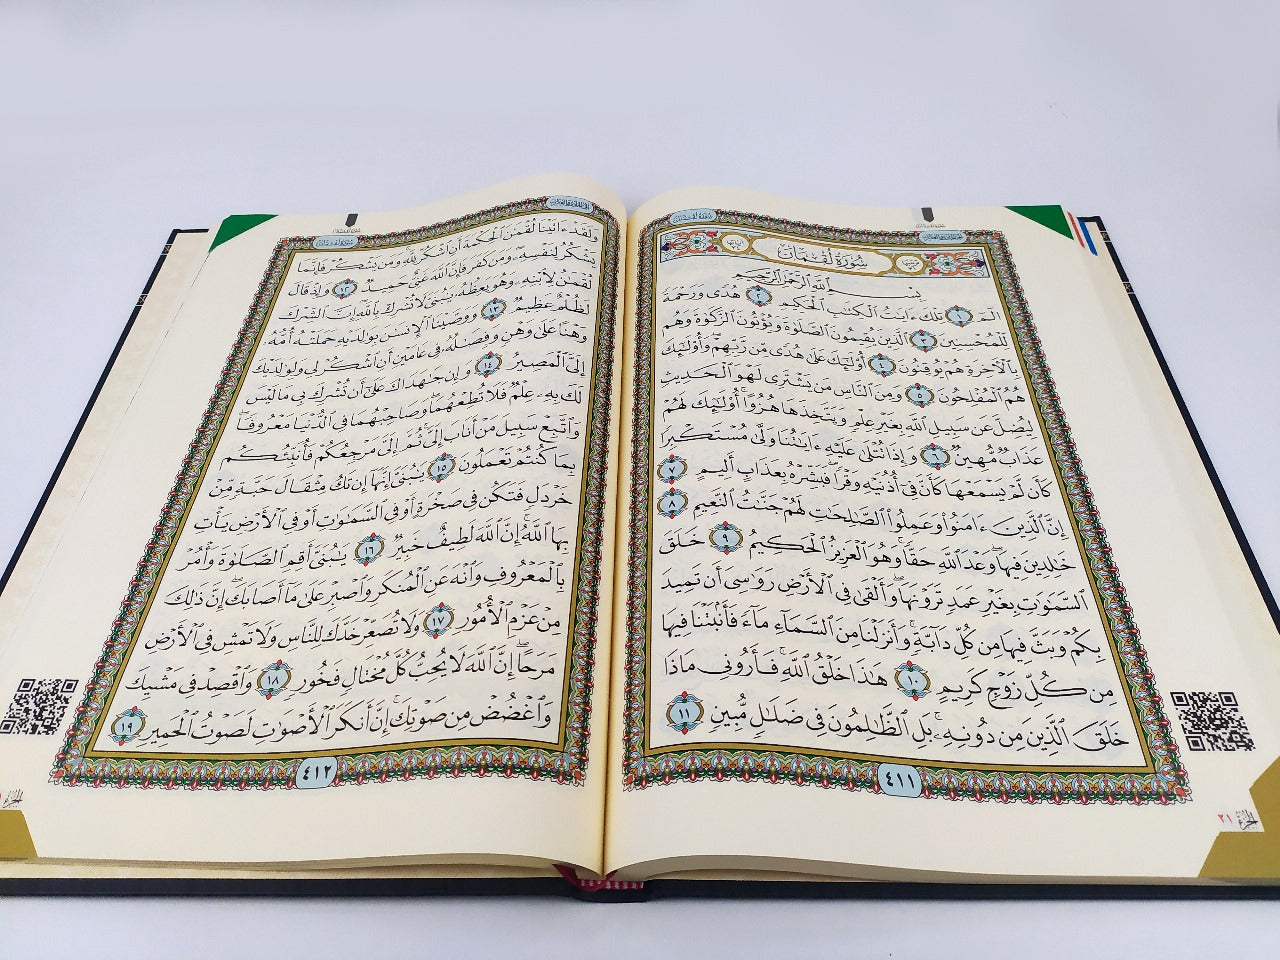 سُورَةُ لُقْمَانَ
بِسْمِ ٱللَّهِ ٱلرَّحْمَٰنِ ٱلرَّحِيمِ
الٓمٓ ١ تِلْكَ ءَايَٰتُ ٱلْكِتَٰبِ ٱلْحَكِيمِ ٢ هُدًى وَرَحْمَةً
لِّلْمُحْسِنِينَ ٣ ٱلَّذِينَ يُقِيمُونَ ٱلصَّلَوٰةَ وَيُؤْتُونَ ٱلزَّكَوٰةَ وَهُم
بِٱلْءَاخِرَةِ هُمْ يُوقِنُونَ ٤ أُو۟لَٰٓئِكَ عَلَىٰ هُدًى مِّن رَّبِّهِمْ ۖ وَأُو۟لَٰٓئِكَ
هُمُ ٱلْمُفْلِحُونَ ٥ وَمِنَ ٱلنَّاسِ مَن يَشْتَرِى لَهْوَ ٱلْحَدِيثِ
لِيُضِلَّ عَن سَبِيلِ ٱللَّهِ بِغَيْرِ عِلْمٍ وَيَتَّخِذَهَا هُزُوًا ۚ أُو۟لَٰٓئِكَ لَهُمْ
عَذَابٌ مُّهِينٌ ٦ وَإِذَا تُتْلَىٰ عَلَيْهِ ءَايَٰتُنَا وَلَّىٰ مُسْتَكْبِرًا
كَأَن لَّمْ يَسْمَعْهَا كَأَنَّ فِىٓ أُذُنَيْهِ وَقْرًا ۖ فَبَشِّرْهُ بِعَذَابٍ أَلِيمٍ ٧
إِنَّ ٱلَّذِينَ ءَامَنُوا۟ وَعَمِلُوا۟ ٱلصَّٰلِحَٰتِ لَهُمْ جَنَّٰتُ ٱلنَّعِيمِ ٨
خَٰلِدِينَ فِيهَا ۖ وَعْدَ ٱللَّهِ حَقًّا ۚ وَهُوَ ٱلْعَزِيزُ ٱلْحَكِيمُ ٩ خَلَقَ
ٱلسَّمَٰوَٰتِ بِغَيْرِ عَمَدٍ تَرَوْنَهَا ۖ وَأَلْقَىٰ فِى ٱلْأَرْضِ رَوَٰسِىَ أَن تَمِيدَ
بِكُمْ وَبَثَّ فِيهَا مِن كُلِّ دَآبَّةٍ ۚ وَأَنزَلْنَا مِنَ ٱلسَّمَآءِ مَآءً فَأَنۢبَتْنَا فِيهَا
مِن كُلِّ زَوْجٍ كَرِيمٍ ١٠ هَٰذَا خَلْقُ ٱللَّهِ فَأَرُونِى مَاذَا
خَلَقَ ٱلَّذِينَ مِن دُونِهِۦ ۚ بَلِ ٱلظَّٰلِمُونَ فِى ضَلَٰلٍ مُّبِينٍ ١١
٤١١
٢١ الجزء
وَلَقَدْ ءَاتَيْنَا لُقْمَٰنَ ٱلْحِكْمَةَ أَنِ ٱشْكُرْ لِلَّهِ ۚ وَمَن يَشْكُرْ فَإِنَّمَا
يَشْكُرُ لِنَفْسِهِۦ ۖ وَمَن كَفَرَ فَإِنَّ ٱللَّهَ غَنِىٌّ حَمِيدٌ ١٢ وَإِذْ قَالَ
لُقْمَٰنُ لِٱبْنِهِۦ وَهُوَ يَعِظُهُۥ يَٰبُنَىَّ لَا تُشْرِكْ بِٱللَّهِ ۖ إِنَّ ٱلشِّرْكَ
لَظُلْمٌ عَظِيمٌ ١٣ وَوَصَّيْنَا ٱلْإِنسَٰنَ بِوَٰلِدَيْهِ حَمَلَتْهُ أُمُّهُۥ
وَهْنًا عَلَىٰ وَهْنٍ وَفِصَٰلُهُۥ فِى عَامَيْنِ أَنِ ٱشْكُرْ لِى وَلِوَٰلِدَيْكَ
إِلَىَّ ٱلْمَصِيرُ ١٤ وَإِن جَٰهَدَاكَ عَلَىٰٓ أَن تُشْرِكَ بِى مَا لَيْسَ
لَكَ بِهِۦ عِلْمٌ فَلَا تُطِعْهُمَا ۖ وَصَاحِبْهُمَا فِى ٱلدُّنْيَا مَعْرُوفًا ۖ
وَٱتَّبِعْ سَبِيلَ مَنْ أَنَابَ إِلَىَّ ۚ ثُمَّ إِلَىَّ مَرْجِعُكُمْ فَأُنَبِّئُكُم
بِمَا كُنتُمْ تَعْمَلُونَ ١٥ يَٰبُنَىَّ إِنَّهَآ إِن تَكُ مِثْقَالَ حَبَّةٍ مِّنْ
خَرْدَلٍ فَتَكُن فِى صَخْرَةٍ أَوْ فِى ٱلسَّمَٰوَٰتِ أَوْ فِى ٱلْأَرْضِ يَأْتِ
بِهَا ٱللَّهُ ۚ إِنَّ ٱللَّهَ لَطِيفٌ خَبِيرٌ ١٦ يَٰبُنَىَّ أَقِمِ ٱلصَّلَوٰةَ وَأْمُرْ
بِٱلْمَعْرُوفِ وَٱنْهَ عَنِ ٱلْمُنكَرِ وَٱصْبِرْ عَلَىٰ مَآ أَصَابَكَ ۖ إِنَّ ذَٰلِكَ
مِنْ عَزْمِ ٱلْأُمُورِ ١٧ وَلَا تُصَعِّرْ خَدَّكَ لِلنَّاسِ وَلَا تَمْشِ فِى ٱلْأَرْضِ
مَرَحًا ۖ إِنَّ ٱللَّهَ لَا يُحِبُّ كُلَّ مُخْتَالٍ فَخُورٍ ١٨ وَٱقْصِدْ فِى مَشْيِكَ
وَٱغْضُضْ مِن صَوْتِكَ ۚ إِنَّ أَنكَرَ ٱلْأَصْوَٰتِ لَصَوْتُ ٱلْحَمِيرِ ١٩
٤١٢